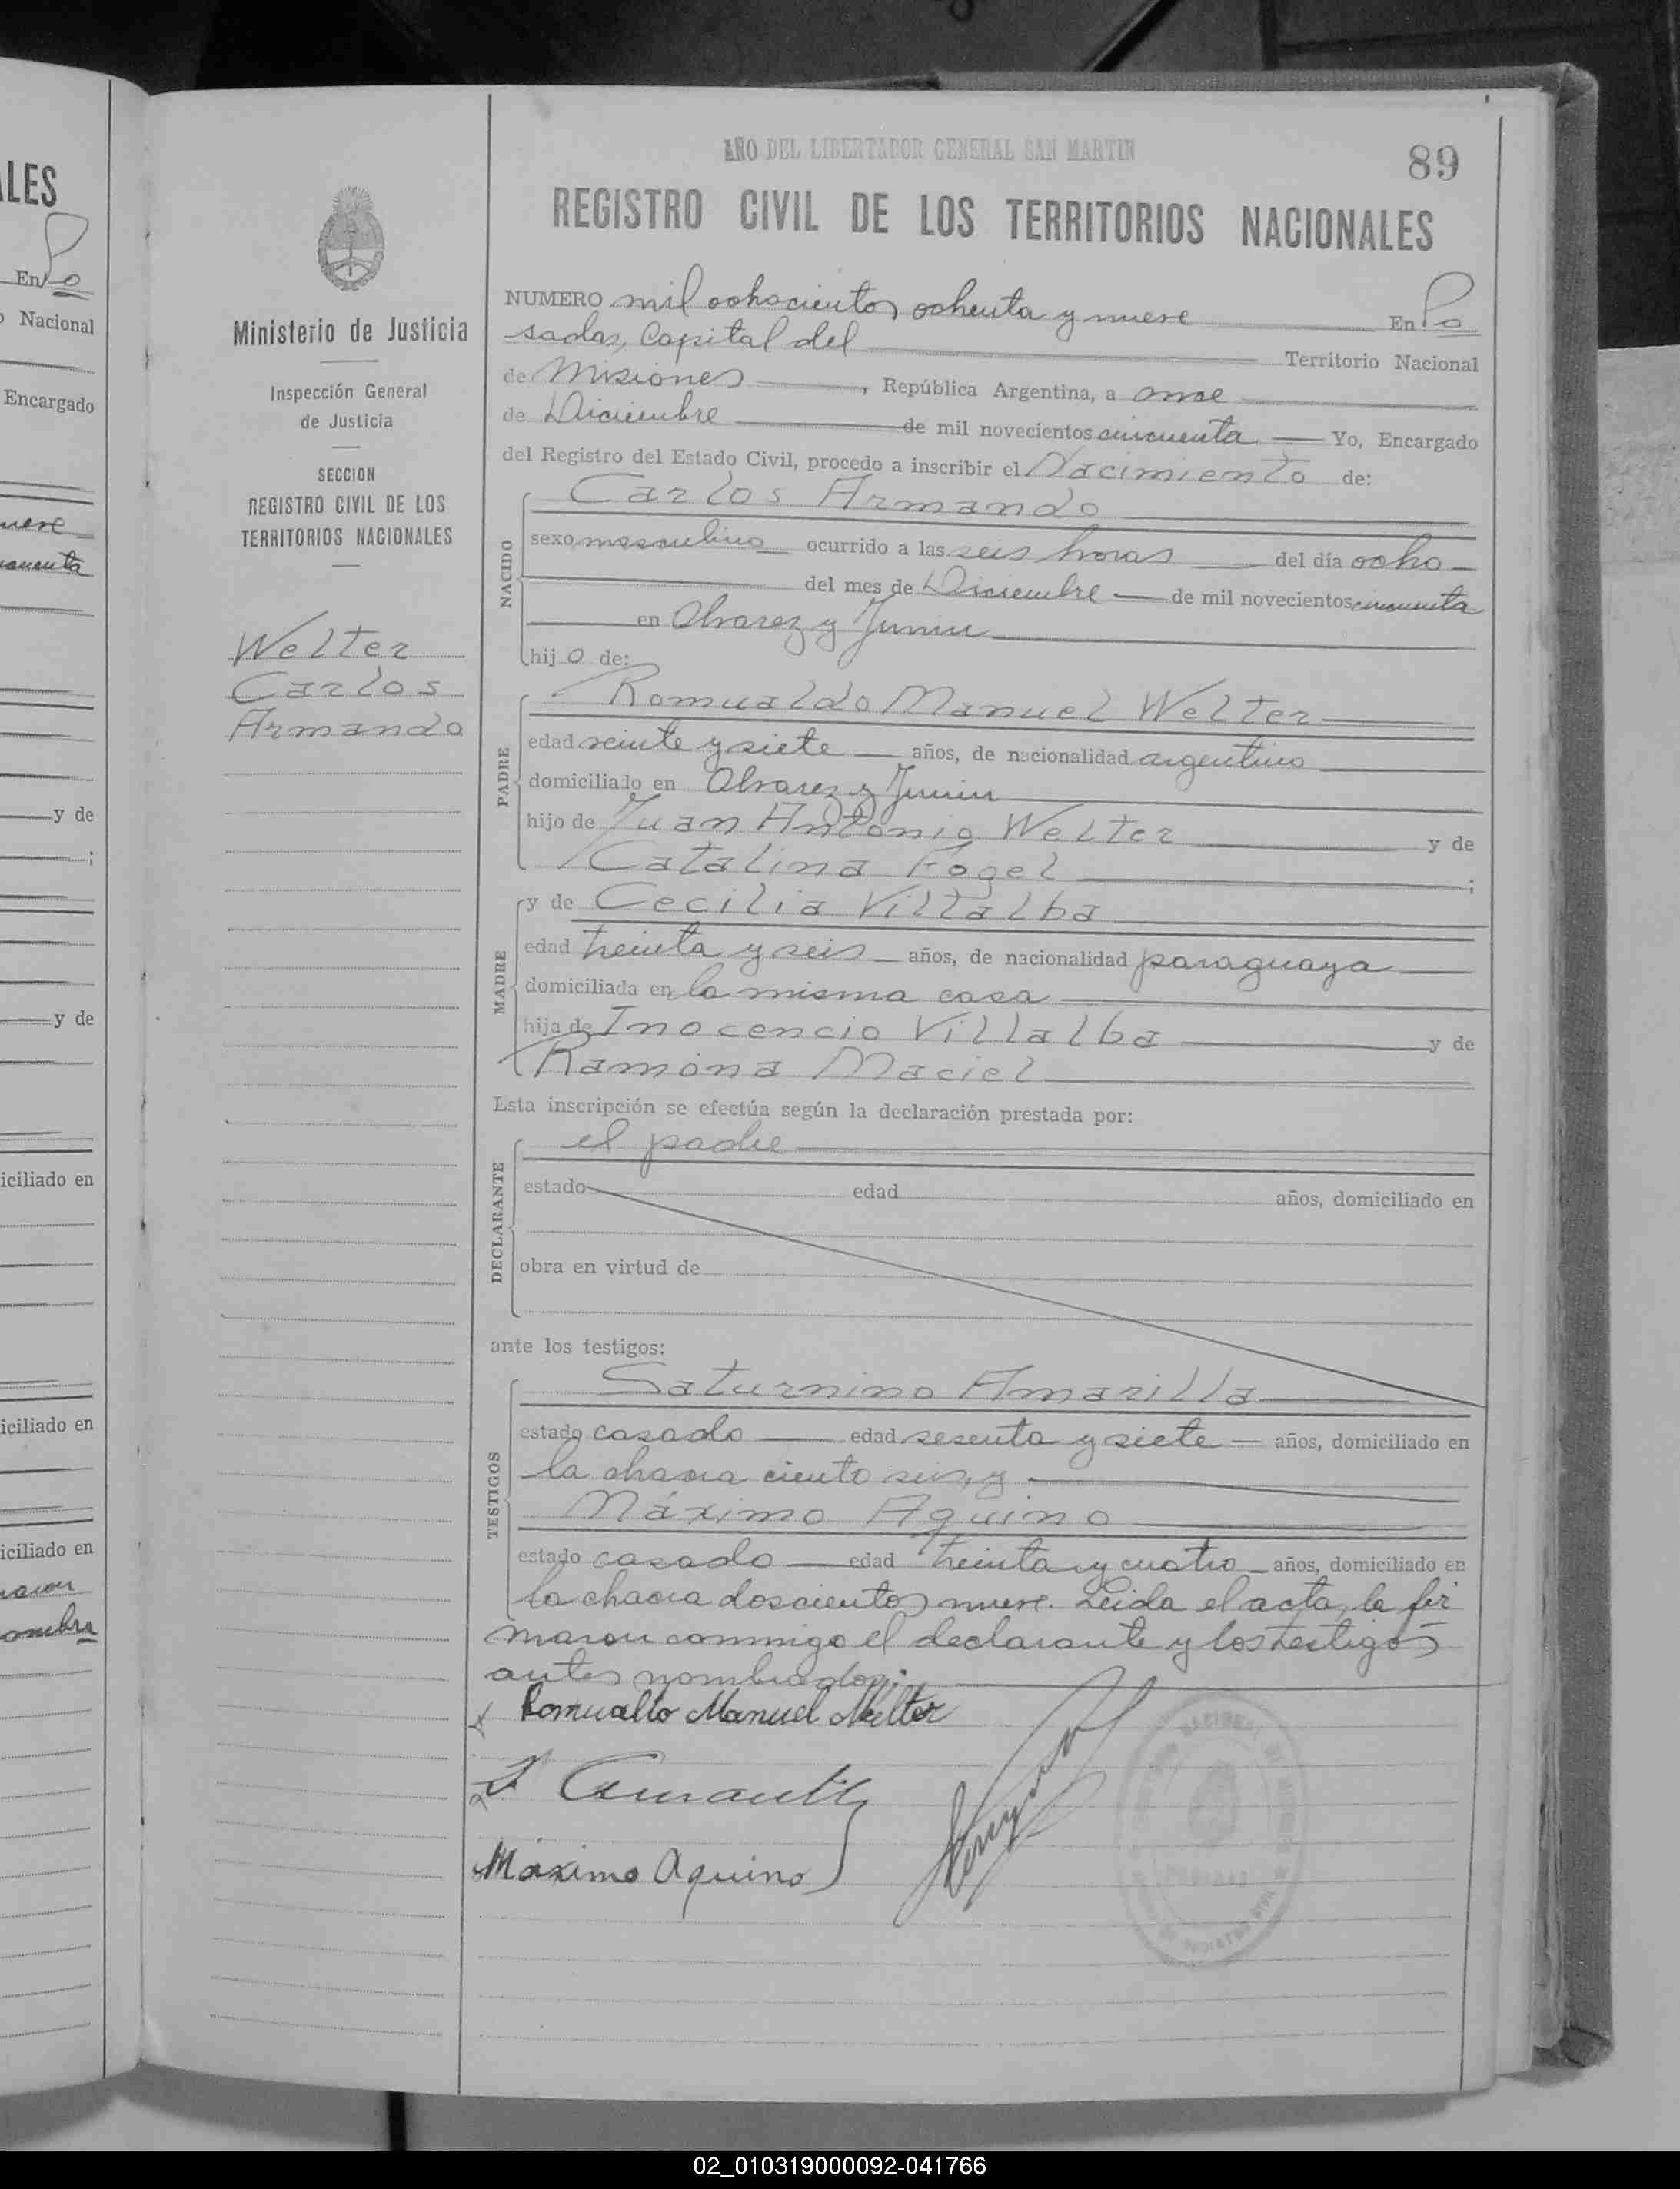 ALES
En Po
o Nacional
Encargado
nueve
cuenta
y de
;
y de
iciliado en
iciliado en
iciliado en
maron
ombra
Ministerio de Justicia
Inspección General
de Justicia
SECCION
REGISTRO CIVIL DE LOS
TERRITORIOS NACIONALES
Welter
Carlos
Armando
AÑO DEL LIBERTADOR GENERAL SAN MARTIN
89
REGISTRO CIVIL DE LOS TERRITORIOS NACIONALES
NUMERO mil ochocientos ochenta y nueve En Po
sadas, Capital del Territorio Nacional
de Misiones, República Argentina, a once
de Diciembre de mil novecientos cincuenta. Yo, Encargado
del Registro del Estado Civil, procedo a inscribir el Nacimiento de:
Carlos Armando
NACIDO
sexo masculino ocurrido a las seis horas del día ocho
del mes de Diciembre de mil novecientos cincuenta
en Alvarez y Junin
hijo de:
Romualdo Manuel Welter
PADRE
edad veinte y siete años, de nacionalidad argentino
domiciliado en Alvarez y Junin
hijo de Juan Antonio Welter y de
Catalina Fogel ;
y de Cecilia Villalba
MADRE
edad treinta y seis años, de nacionalidad paraguaya
domiciliada en la misma casa
hija de Inocencio Villalba y de
Ramona Maciel
Esta inscripción se efectúa según la declaración prestada por:
el padre
DECLARANTE
estado edad años, domiciliado en
obra en virtud de
ante los testigos:
Saturnino Amarilla
TESTIGOS
estado casado edad sesenta y siete años, domiciliado en
la chacra ciento seis, y
Máximo Aquino
estado casado edad treinta y cuatro años, domiciliado en
la chacra doscientos nueve. Leida el acta, la fir
maron conmigo el declarante y los testigos
antes nombrados.
Romualto Manuel Welter
S Amarilla
Máximo Aquino
02_010319000092-041766